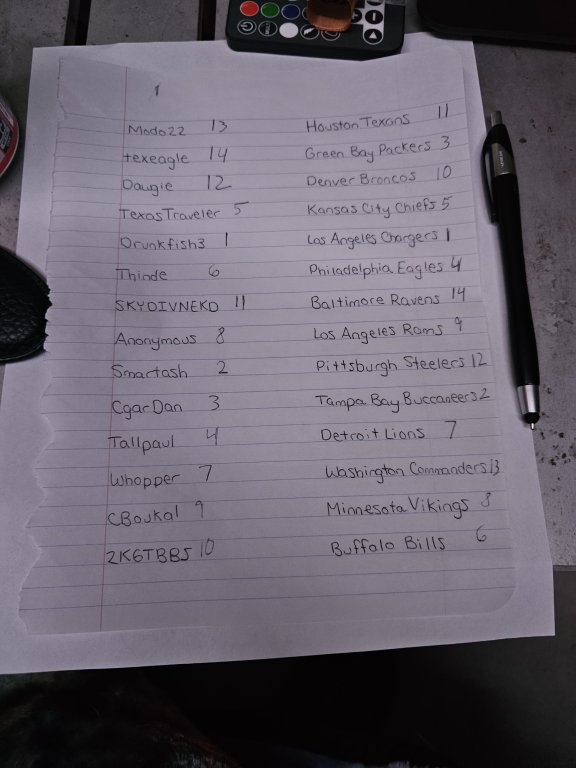 1
Mado22 13 Houston Texans 11
texeagle 14 Green Bay Packers 3
Dougie 12 Denver Broncos 10
TexasTraveler 5 Kansas City Chiefs 5
Drunkfish3 1 Los Angeles Chargers 1
Thinde 6 Philadelphia Eagles 4
SKYDIVNEKD 11 Baltimore Ravens 14
Anonymous 8 Los Angeles Rams 9
Smartash 2 Pittsburgh Steelers 12
CgarDan 3 Tampa Bay Buccaneers 2
Tallpaul 4 Detroit Lions 7
Whopper 7 Washington Commanders 13
CBoukal 9 Minnesota Vikings 8
2K6TBBS 10 Buffalo Bills 6